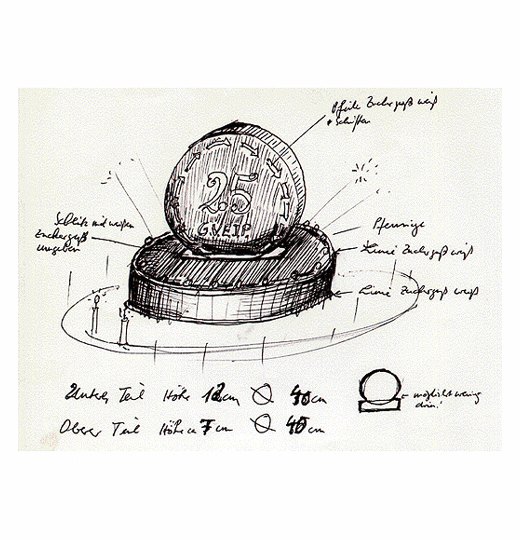 Pfeile Zuckerguß weiß
+ Schriften
25
G.V.E.I.P.
Schlitz mit weißem
Zuckerguß
umgeben
Pfennige
Linie Zuckerguß weiß
Linie Zuckerguß weiß
Unteres Teil Höhe 12cm Ø 40cm
Oberer Teil Höhe 7cm Ø 40cm
möglichst wenig